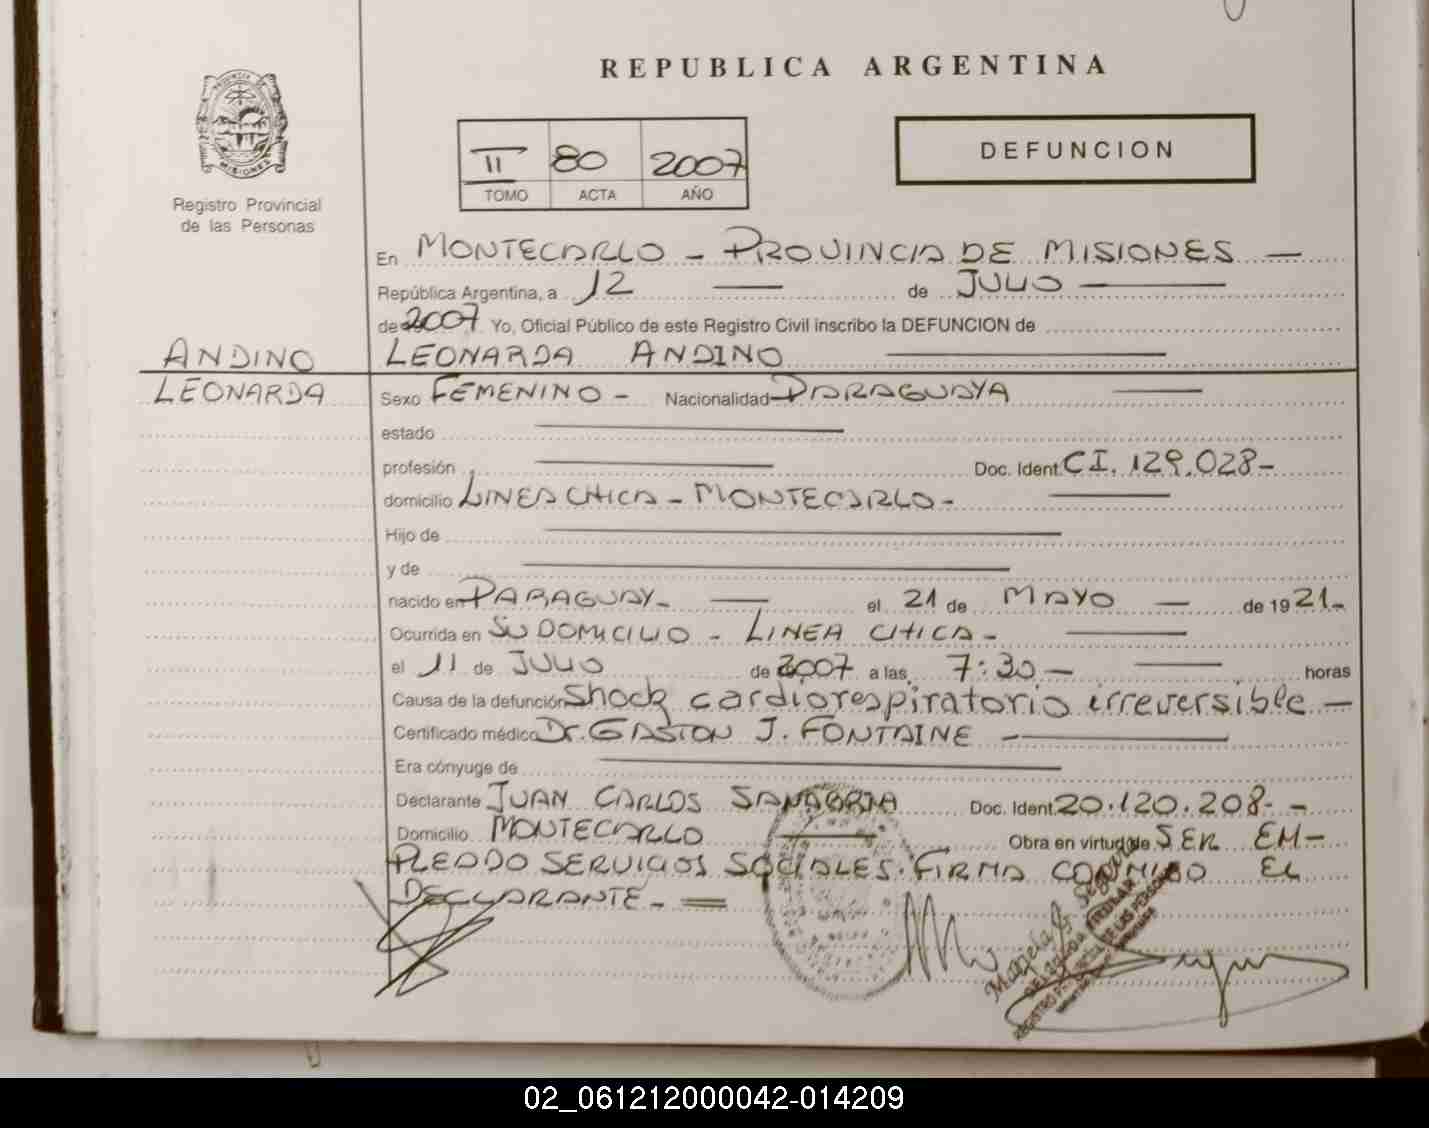 REPUBLICA ARGENTINA
PROVINCIA DE
MISIONES
Registro Provincial
de las Personas
II 80 2007
TOMO ACTA AÑO
DEFUNCION
En MONTECARLO - PROVINCIA DE MISIONES —
República Argentina, a 12 — de JULIO —
de 2007 Yo, Oficial Público de este Registro Civil inscribo la DEFUNCION de
ANDINO LEONARDA ANDINO —
LEONARDA Sexo FEMENINO - Nacionalidad PARAGUAYA —
estado —
profesión — Doc. Ident. CI. 129.028-
domicilio LINEA CHICA - MONTECARLO - —
Hijo de —
y de —
nacido en PARAGUAY- — el 21 de MAYO — de 19 21-
Ocurrida en SU DOMICILIO - LINEA CHICA - —
el 11 de JULIO de 2007 a las 7:30 — — horas
Causa de la defunción Shock cardiorespiratorio irreversible —
Certificado médico Dr. GASTON J. FONTAINE —
Era cónyuge de —
Declarante JUAN CARLOS SANABRIA Doc. Ident. 20.120.208- -
Domicilio MONTECARLO — Obra en virtud de SER EM-
PLEADO SERVICIOS SOCIALES. FIRMA CONMIGO EL
DECLARANTE - =
DELEGADA TITULAR
02_061212000042-014209